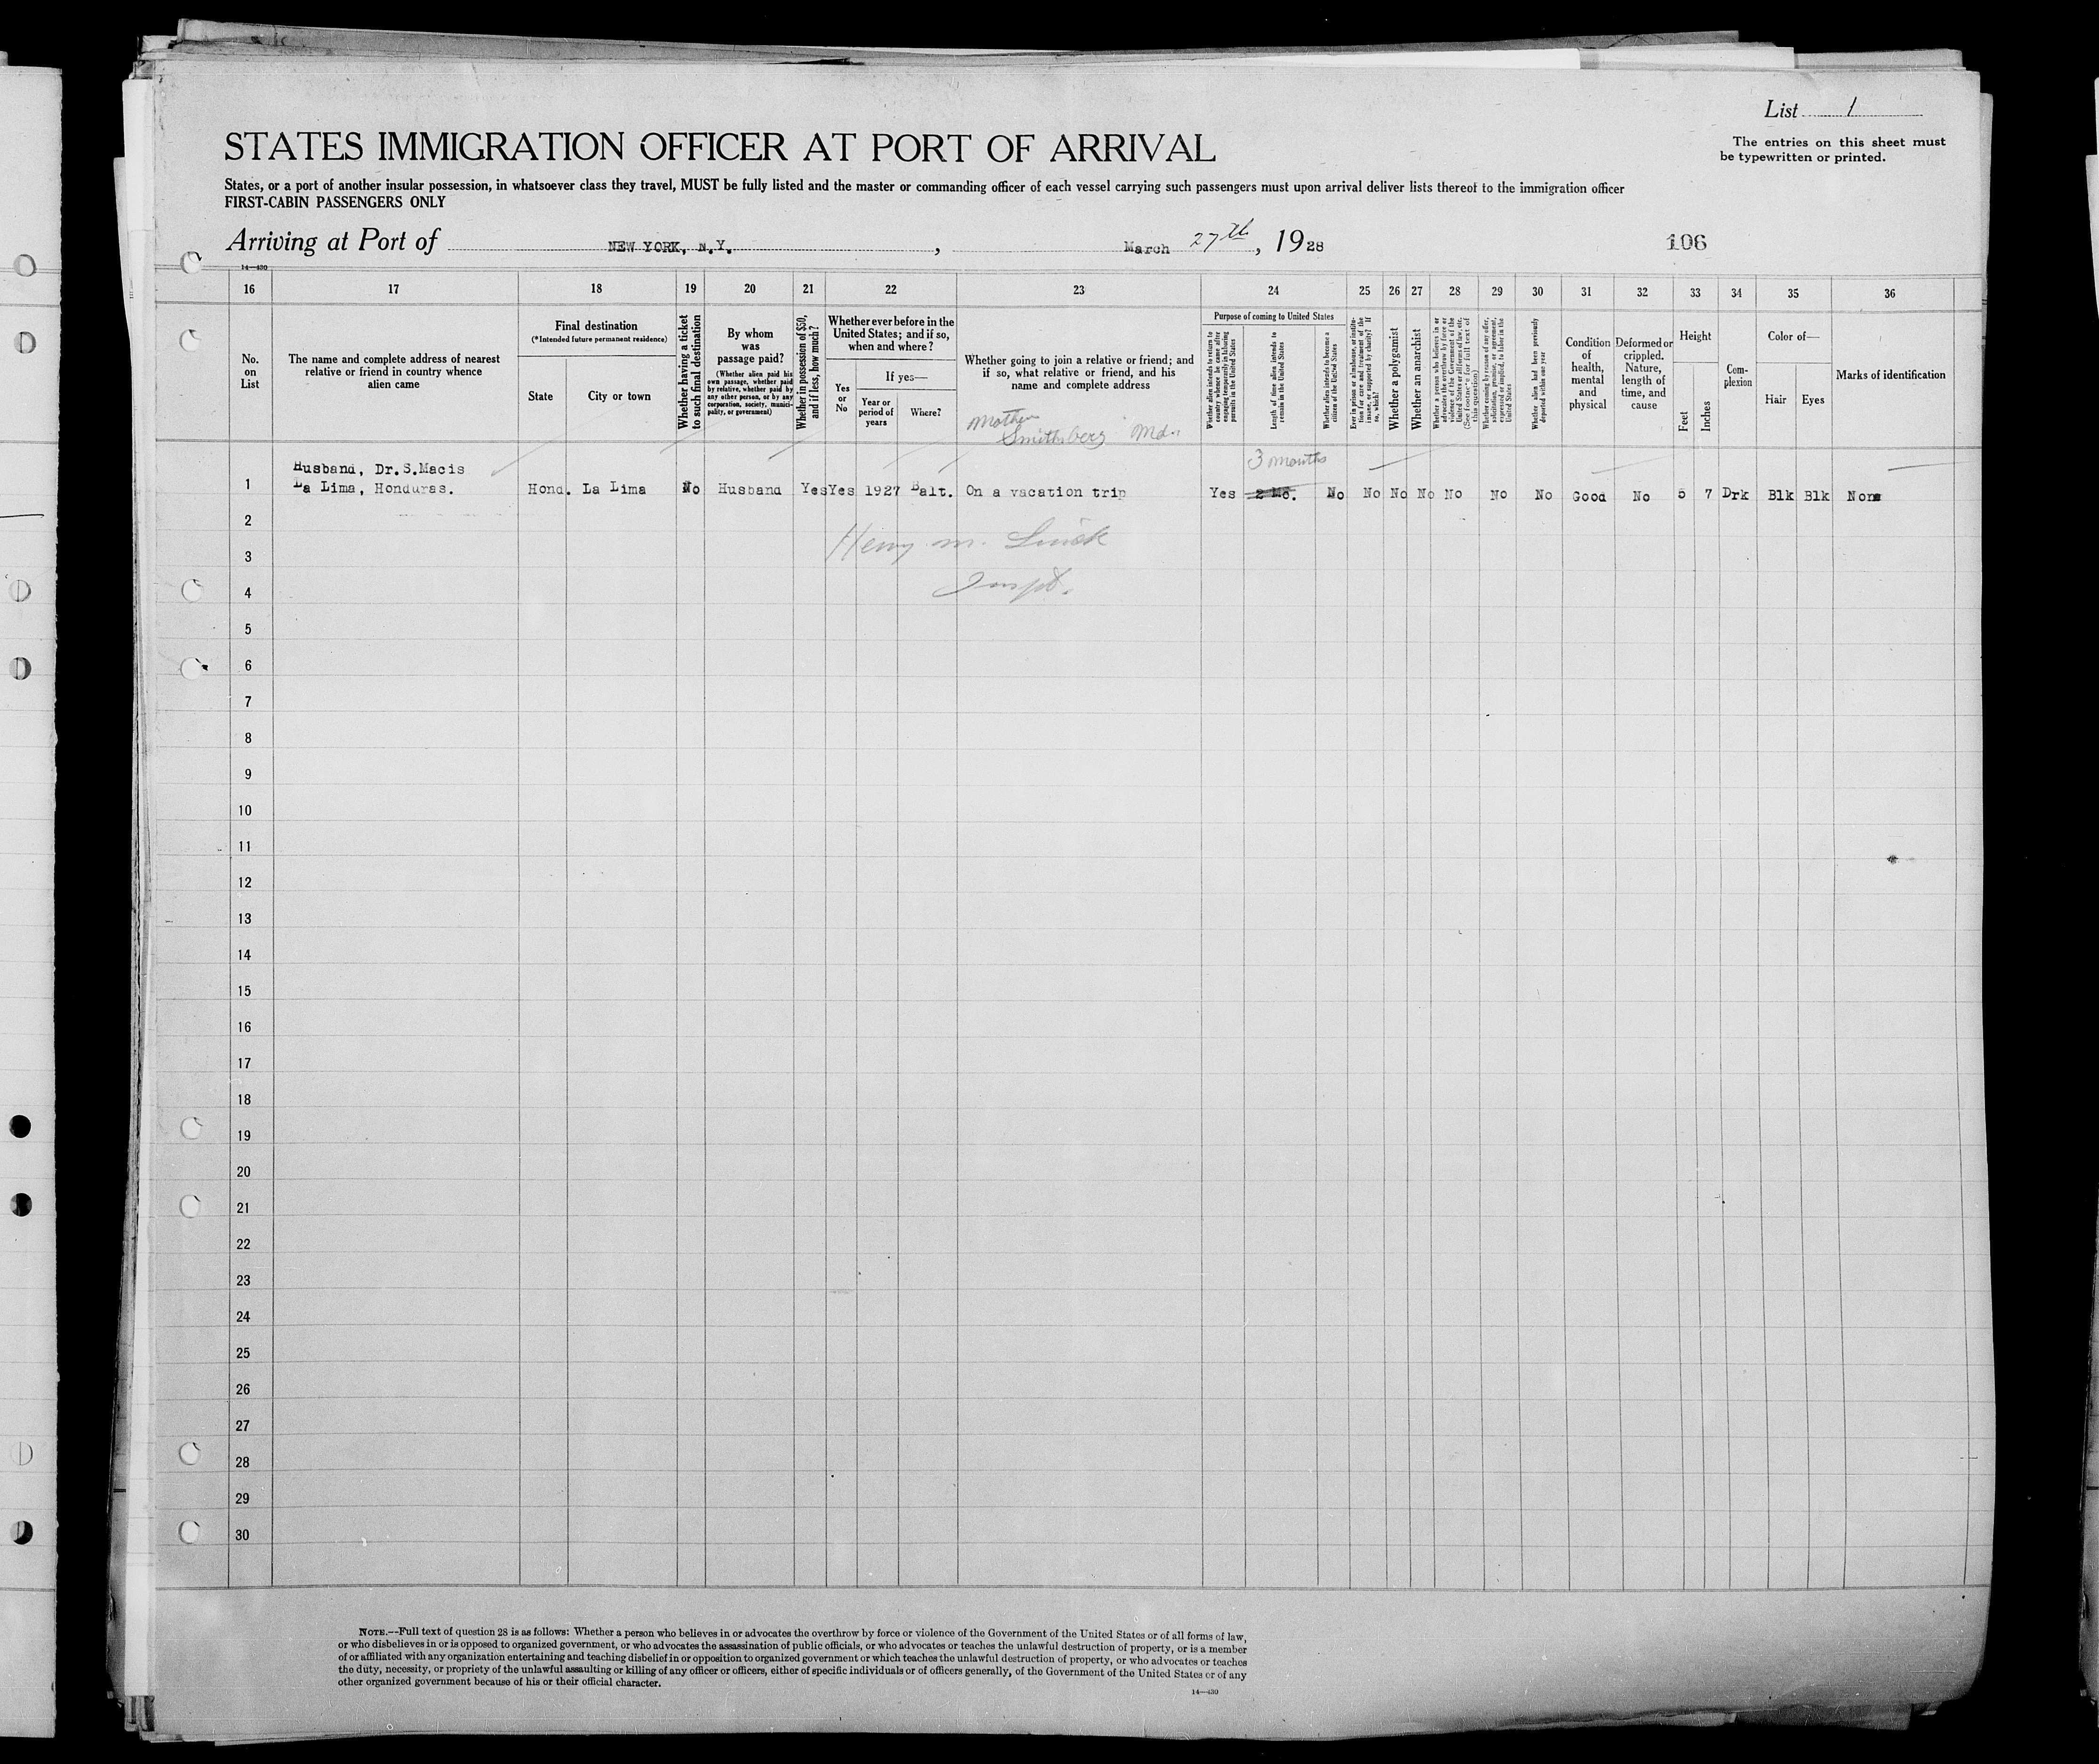 List 1
The entries on this sheet must
be typewritten or printed.
STATES IMMIGRATION OFFICER AT PORT OF ARRIVAL
States, or a port of another insular possession, in whatsoever class they travel, MUST be fully listed and the master or commanding officer of each vessel carrying such passengers must upon arrival deliver lists thereof to the immigration officer
FIRST-CABIN PASSENGERS ONLY
Arriving at Port of NEW YORK, N.Y., March 27th, 1928
106
14—430
16 17 18 19 20 21 22 23 24 25 26 27 28 29 30 31 32 33 34 35 36
No.
on
List
The name and complete address of nearest
relative or friend in country whence
alien came
Final destination
(*Intended future permanent residence)
State
City or town
Whether having a ticket
to such final destination
By whom
was
passage paid?
(Whether alien paid his
own passage, whether paid
by relative, whether paid by
any other person, or by any
corporation, society, munici-
pality, or government)
Whether in possession of $50,
and if less, how much?
Whether ever before in the
United States; and if so,
when and where?
Yes
or
No
If yes—
Year or
period of
years
Where?
Whether going to join a relative or friend; and
if so, what relative or friend, and his
name and complete address
Purpose of coming to United States
Whether alien intends to return to
country whence he came after
engaging temporarily in laboring
pursuits in the United States
Length of time alien intends to
remain in the United States
Whether alien intends to become a
citizen of the United States
Ever in prison or almshouse, or institu-
tion for care and treatment of the
insane, or supported by charity? If
so, which?
Whether a polygamist
Whether an anarchist
Whether a person who believes in or
advocates the overthrow by force or
violence of the Government of the
United States or all forms of law, etc.
(See footnote for full text of
this question)
Whether coming by reason of any offer,
solicitation, promise, or agreement,
expressed or implied, to labor in the
United States
Whether alien had been previously
deported within one year
Condition
of
health,
mental
and
physical
Deformed or
crippled.
Nature,
length of
time, and
cause
Height
Feet
Inches
Com-
plexion
Color of—
Hair
Eyes
Marks of identification
Mother
Smithsberg Md.
Husband, Dr.S.Macis
3 months
1 La Lima, Honduras. Hond. La Lima No Husband Yes Yes 1927 Balt. On a vacation trip Yes 2 Mo. No No No No No No No Good No 5 7 Drk Blk Blk None
2
Henry M.
3
Inspt.
4
5
6
7
8
9
10
11
12
13
14
15
16
17
18
19
20
21
22
23
24
25
26
27
28
29
30
NOTE.—Full text of question 28 is as follows: Whether a person who believes in or advocates the overthrow by force or violence of the Government of the United States or of all forms of law,
or who disbelieves in or is opposed to organized government, or who advocates the assassination of public officials, or who advocates or teaches the unlawful destruction of property, or is a member
of or affiliated with any organization entertaining and teaching disbelief in or opposition to organized government or which teaches the unlawful destruction of property, or who advocates or teaches
the duty, necessity, or propriety of the unlawful assaulting or killing of any officer or officers, either of specific individuals or of officers generally, of the Government of the United States or of any
other organized government because of his or their official character.
14—430